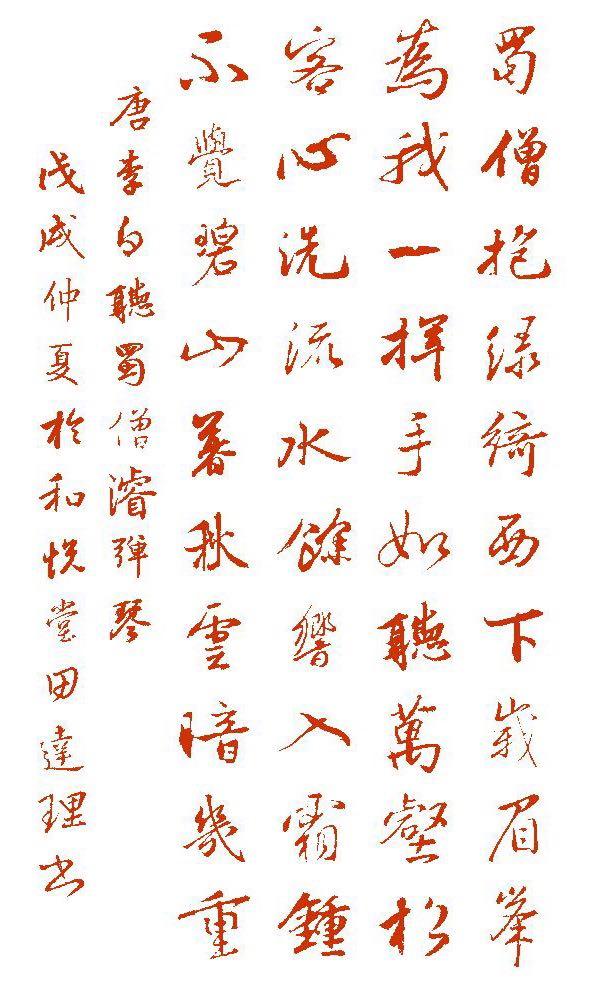 蜀僧抱绿綺西下峩眉峯
為我一揮手如聽萬壑松
客心洗流水餘響入霜鍾
不覺碧山暮秋雲暗幾重
唐李白聽蜀僧濬弹琴
戊戌仲夏於和悦堂田達理书